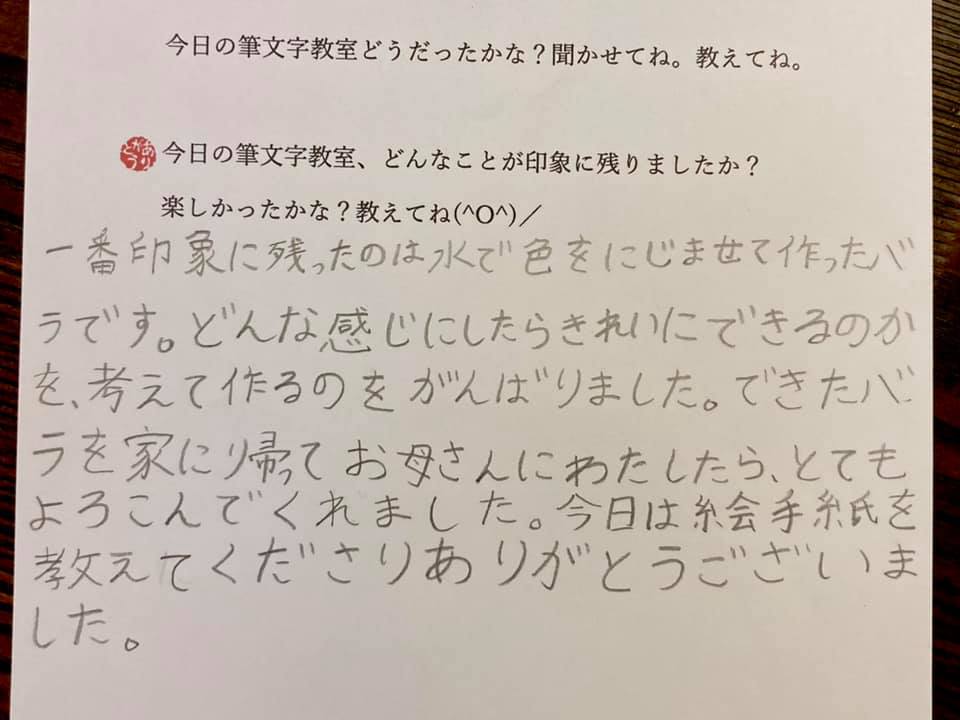 今日の筆文字教室どうだったかな？聞かせてね。教えてね。
ありがとう
今日の筆文字教室、どんなことが印象に残りましたか？
楽しかったかな？教えてね(^O^)／
一番印象に残ったのは水で色をにじませて作ったバ
ラです。どんな感じにしたらきれいにできるのか
を、考えて作るのをがんばりました。できたバ
ラを家に帰ってお母さんにわたしたら、とても
よろこんでくれました。今日は絵手紙を
教えてくださりありがとうございま
した。